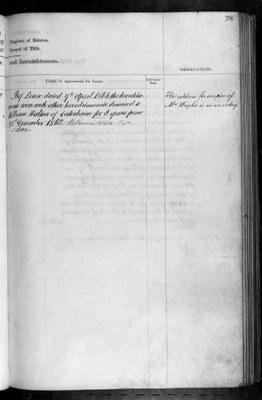 78
Register of Estates.
Record of Title.
and Incumbrances.
OBSERVATIONS.
Leases, or Agreements for Leases.
By Lease dated 9th April 1864 the heredita-
ments were with other hereditaments demised to
William of Caterham for 3 years from
25th December 1862
The address for service of
Mr Wright is as in entry.